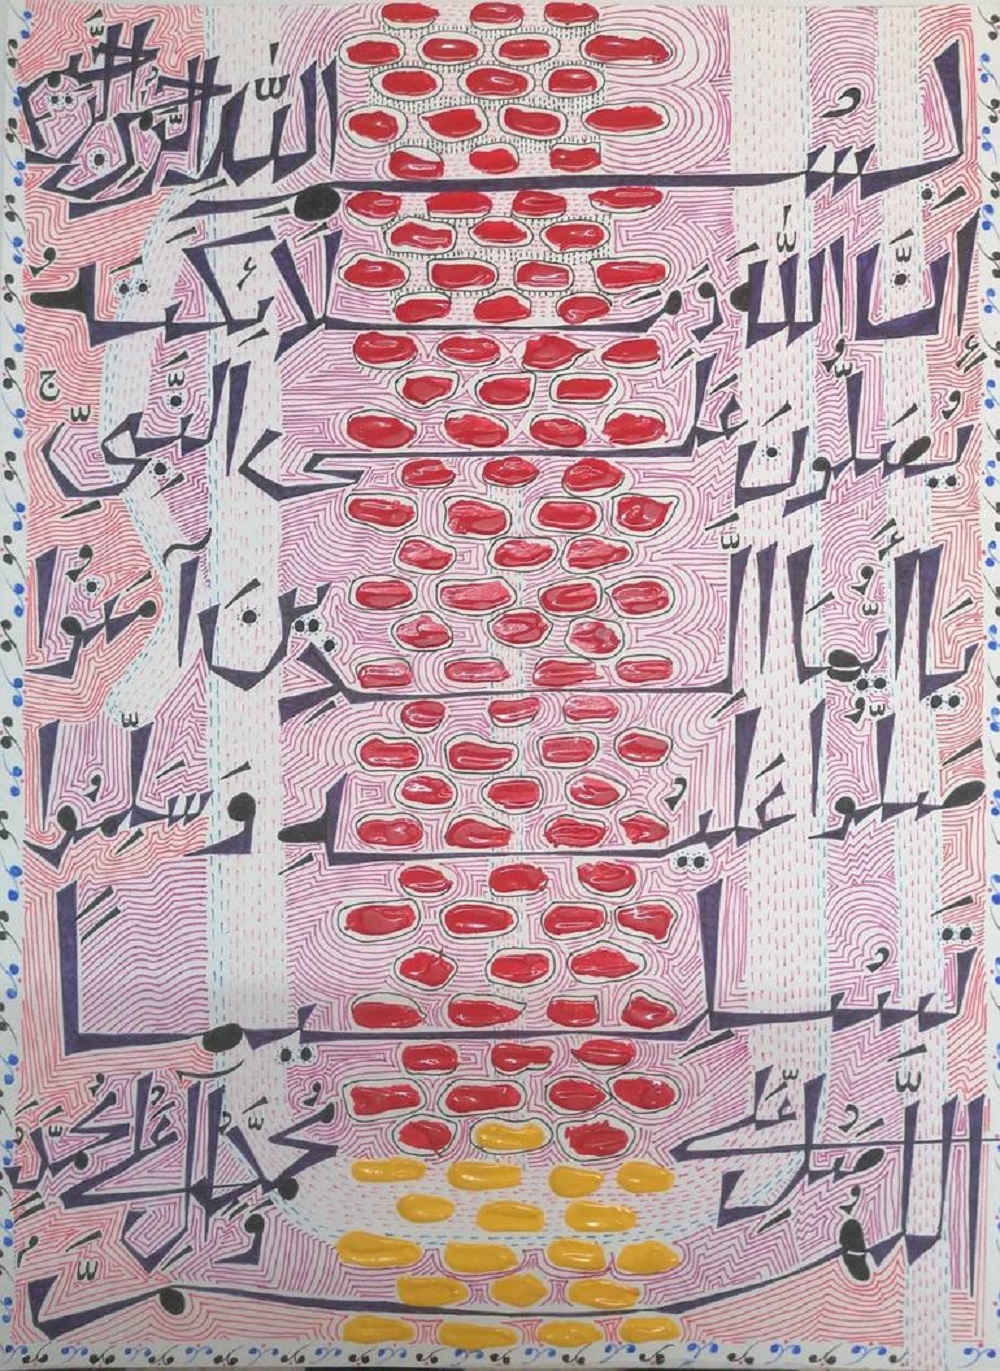 بِسْمِ اللّٰهِ الرَّحْمٰنِ الرَّحِيمِ
اِنَّ اللّٰهَ وَمَلَائِكَتَهُ
يُصَلُّونَ عَلَى النَّبِيِّ ج
يَا أَيُّهَا الَّذِينَ آمَنُوا
صَلُّوا عَلَيْهِ وَسَلِّمُوا
تَسْلِيمًا
اللّٰهُمَّ صَلِّ عَلٰى مُحَمَّدٍ وَ اٰلِ مُحَمَّدٍ